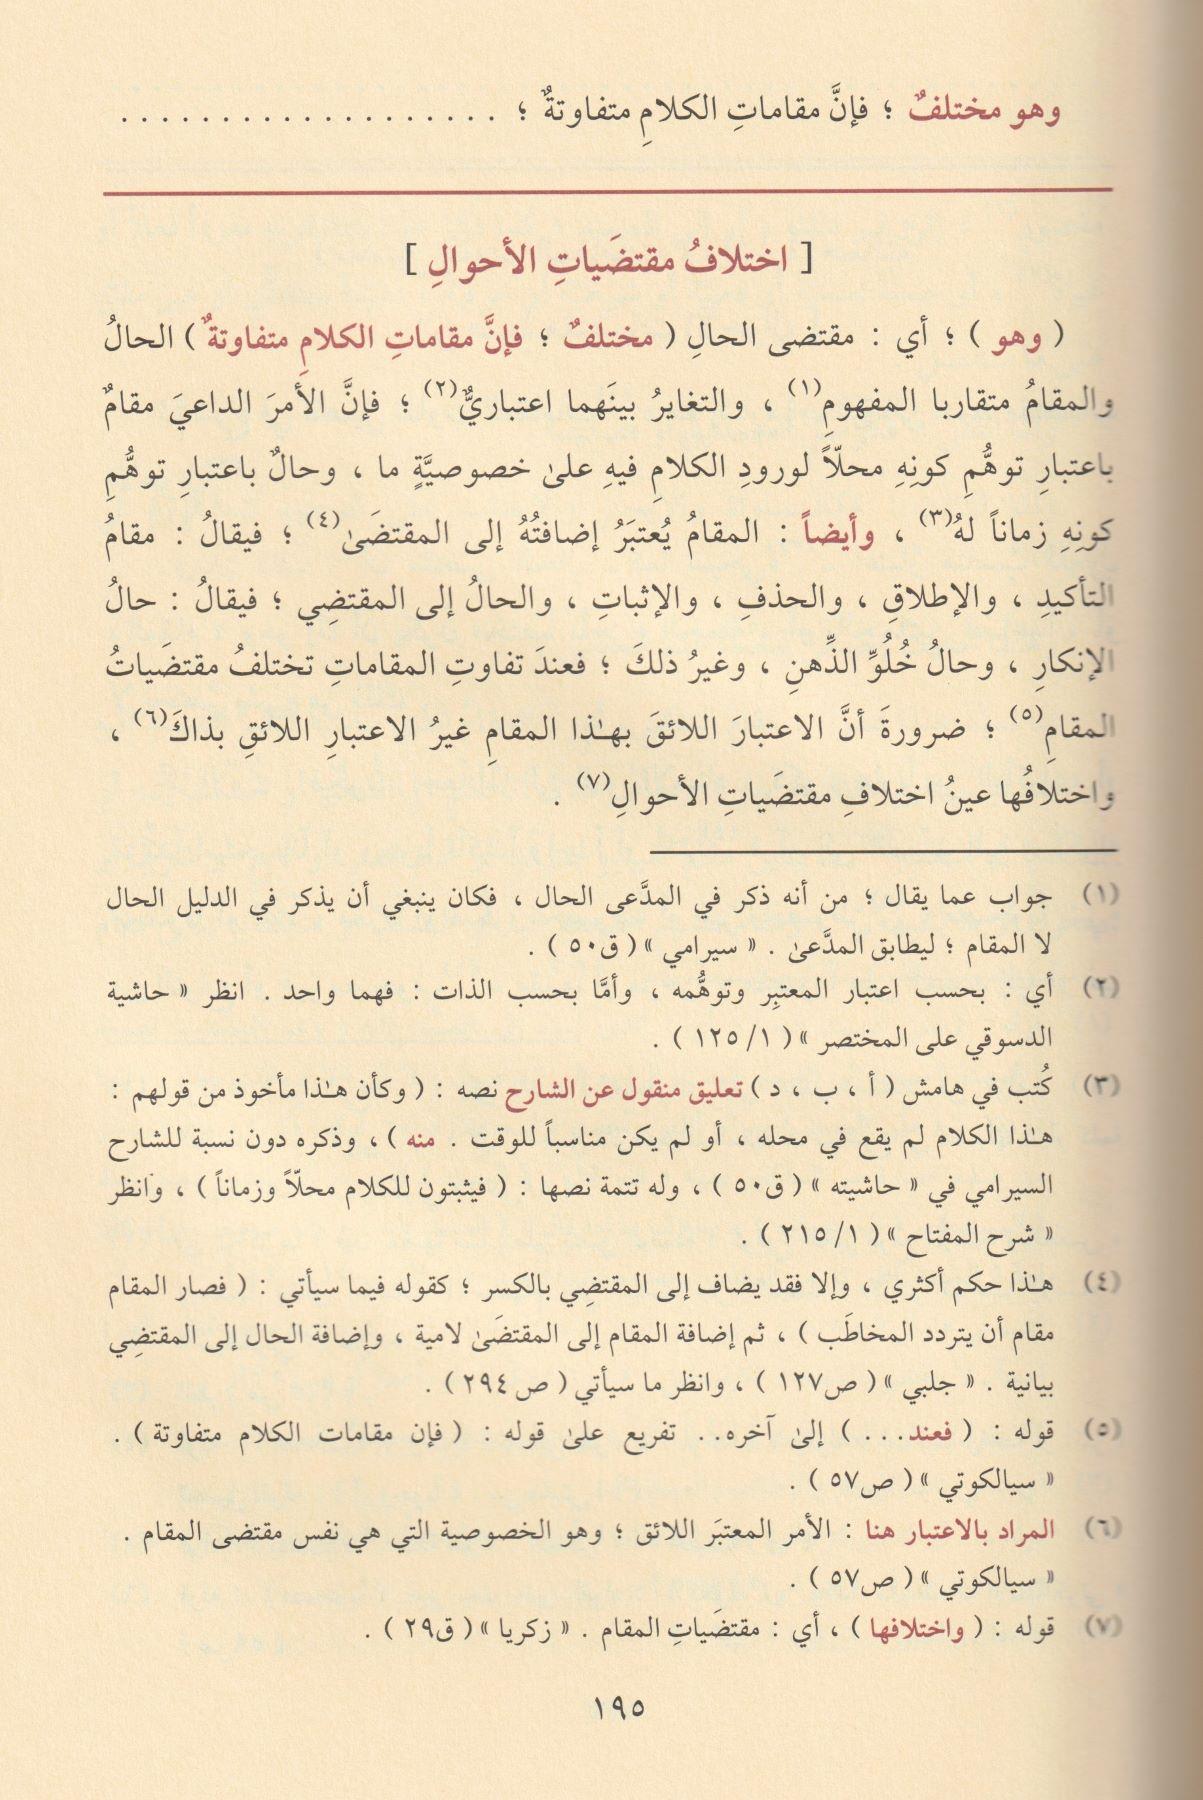 وهو مختلفٌ ؛ فإنَّ مقاماتِ الكلامِ متفاوتةٌ ؛ . . . . . . . . . . . . . . . . . . .
[ اختلافُ مقتضَياتِ الأحوالِ ]
( وهو ) ؛ أي : مقتضى الحالِ ( مختلفٌ ؛ فإنَّ مقاماتِ الكلامِ متفاوتةٌ ) الحالُ
والمقامُ متقاربا المفهومِ(١) ، والتغايرُ بينَهما اعتباريٌّ(٢) ؛ فإنَّ الأمرَ الداعيَ مقامٌ
باعتبارِ توهُّمِ كونِهِ محلّاً لورودِ الكلامِ فيهِ علىٰ خصوصيَّةٍ ما ، وحالٌ باعتبارِ توهُّمِ
كونِهِ زماناً لهُ(٣) ، وأيضاً : المقامُ يُعتبَرُ إضافتُهُ إلى المقتضَىٰ(٤) ؛ فيقالُ : مقامُ
التأكيدِ ، والإطلاقِ ، والحذفِ ، والإثباتِ ، والحالُ إلى المقتضِي ؛ فيقالُ : حالُ
الإنكارِ ، وحالُ خُلُوِّ الذِّهنِ ، وغيرُ ذلكَ ؛ فعندَ تفاوتِ المقاماتِ تختلفُ مقتضَياتُ
المقامِ(٥) ؛ ضرورةَ أنَّ الاعتبارَ اللائقَ بهـٰذا المقامِ غيرُ الاعتبارِ اللائقِ بذاكَ(٦) ،
واختلافُها عينُ اختلافِ مقتضَياتِ الأحوالِ(٧) .
(١) جواب عما يقال ؛ من أنه ذكر في المدَّعى الحال ، فكان ينبغي أن يذكر في الدليل الحال
لا المقام ؛ ليطابق المدَّعىٰ . « سيرامي » ( ق٥٠ ) .
(٢) أي : بحسب اعتبار المعتبِر وتوهُّمه ، وأمَّا بحسب الذات : فهما واحد . انظر « حاشية
الدسوقي على المختصر » ( ١/ ١٢٥ ) .
(٣) كُتب في هامش ( أ ، ب ، د ) تعليق منقول عن الشارح نصه : ( وكأن هـٰذا مأخوذ من قولهم :
هـٰذا الكلام لم يقع في محله ، أو لم يكن مناسباً للوقت . منه ) ، وذكره دون نسبة للشارح
السيرامي في « حاشيته » ( ق٥٠ ) ، وله تتمة نصها : ( فيثبتون للكلام محلّاً وزماناً ) ، وانظر
« شرح المفتاح » ( ١/ ٢١٥ ) .
(٤) هـٰذا حكم أكثري ، وإلا فقد يضاف إلى المقتضِي بالكسر ؛ كقوله فيما سيأتي : ( فصار المقام
مقام أن يتردد المخاطَب ) ، ثم إضافة المقام إلى المقتضَىٰ لامية ، وإضافة الحال إلى المقتضِي
بيانية . « جلبي » ( ص١٢٧ ) ، وانظر ما سيأتي ( ص ٢٩٤ ) .
(٥) قوله : ( فعند... ) إلىٰ آخره.. تفريع علىٰ قوله : ( فإن مقامات الكلام متفاوتة ) .
« سيالكوتي » ( ص٥٧ ) .
(٦) المراد بالاعتبار هنا : الأمر المعتبَر اللائق ؛ وهو الخصوصية التي هي نفس مقتضى المقام .
« سيالكوتي » ( ص٥٧ ) .
(٧) قوله : ( واختلافها ) ، أي : مقتضَياتِ المقام . « زكريا » ( ق٢٩ ) .
١٩٥